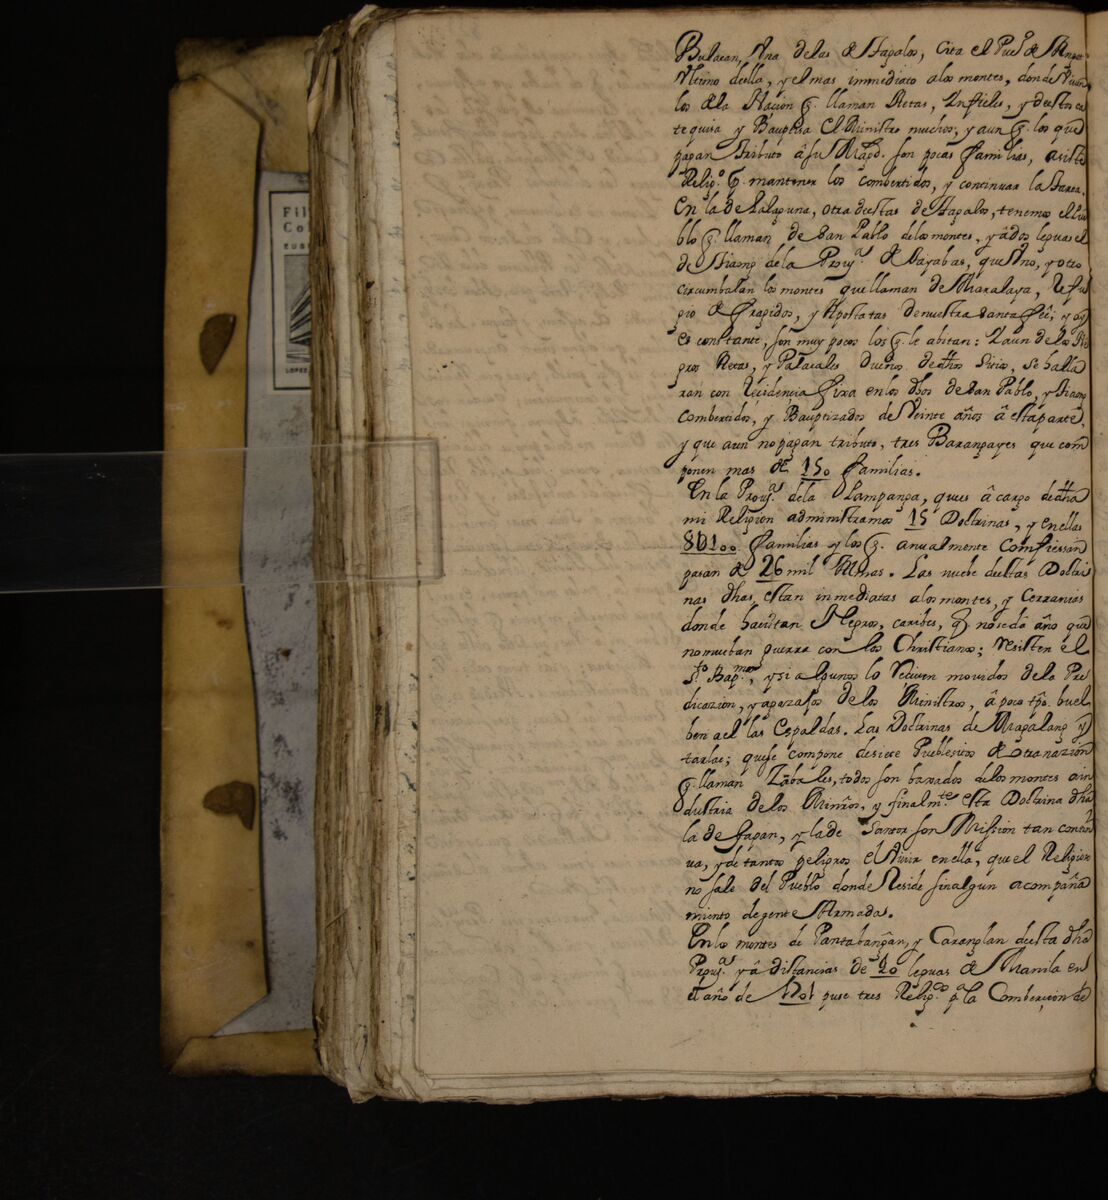 Fil
Co
EUG
LOPEZ
Bulacan, Una delas de Tagalos, cita el Pueº de Angat
Ultimo della, y el mas immediato alos montes, donde Viuen
los de la Nacion q. llaman Aetas, Infieles, y destos ca
tequisa y Baptisa el Ministro muchos, y aun q. los que
pagan tributo â su Magd. son pocas familias, asiste
Religº. p. mantener los combertidos, y continuar la tarea.
En la de Lalaguna, otra destas de Tagalos, tenemos el Pue
blo q. llaman de San Pablo delos montes, y â dos leguas el
de Tiaong dela Provª. de Tayabas, que Uno, y otro
circumbalan los montes que llaman de Maralaya, Refu
gio de fragidos, y Apostatas de nuestra Santa feê; y aq
es constante, son muy pocos los q. le abitan: Y aun de los Ne
gros Aetas, y Balacales dueños de dhos Sitios, se halla
ran con Residencia fixa en los dhos de San Pablo, y Tiaong
Combertidos, y Bauptizados de Veinte años â esta parte,
y que aun no pagan tributo, tres Barangayes que com
ponen mas de 150 familias.
En la Provª. dela Pampanga, que es â cargo de dha
mi Religion administramos 15 Doctrinas, y en ellas
8U100 familias y los q. anualmente confiessan
pasan de 26 mil Almas. Las nuebe destas Doctri
nas dhas, estan inmediatas alos montes, y Cerranias
donde hauitan Negros, caribes, q. no se dâ año que
no mueban guerra con los Christianos; resisten el
Sto. Bapmo, y si algunos lo Reciuen mouidos de la Pre
dicazion, y agazajos de los Ministros, â poco tpo. buel
ben a el las Espaldas. Las Doctrinas de Magalang y
tarlac; que se compone de siete Pueblesitos de otra nazion
q. llaman Zabales, todos son baxados delos montes a in
dustria de los Minros, y finalmte. esta Doctrina dha
la de Gapan, y la de Santor son Mission tan contin
ua, y de tantos peligros el viuir en ella, que el Religioso
no sale del Pueblo donde Reside sin algun acompaña
miento de gente Armada.
En los montes de Pantabangan, y Caranglan desta dha
Provª. y â distancias de 20 leguas de Manila en
el año de 1701 puse tres Religos pª la Comberçion de